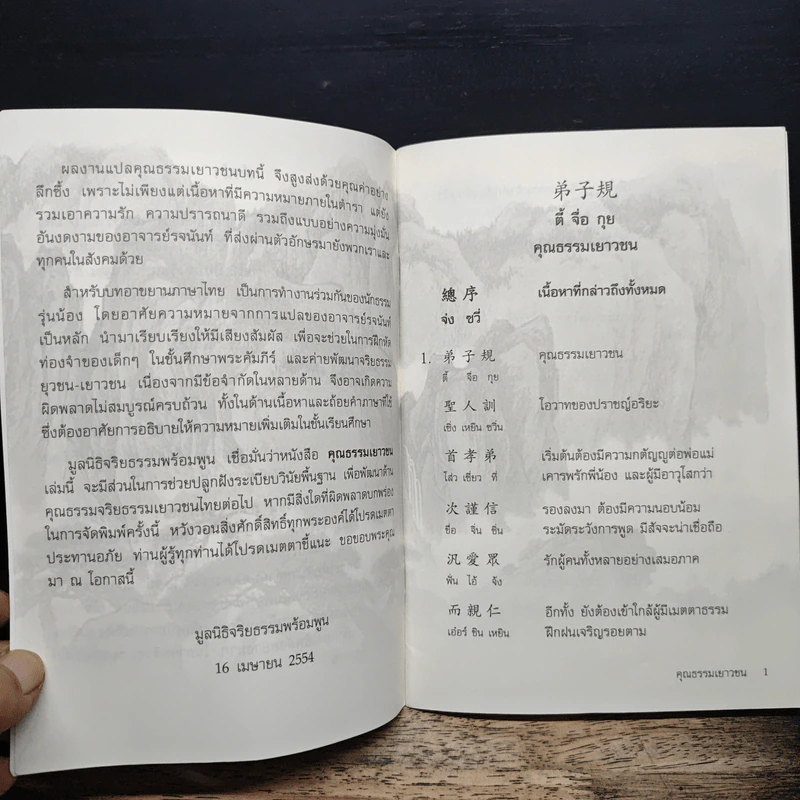 ผลงานแปลคุณธรรมเยาวชนบทนี้ จึงสูงส่งด้วยคุณค่าอย่าง
ลึกซึ้ง เพราะไม่เพียงแต่เนื้อหาที่มีความหมายภายในตำรา แต่ยัง
รวมเอาความรัก ความปรารถนาดี รวมถึงแบบอย่างความมุ่งมั่น
อันงดงามของอาจารย์รจนันท์ ที่ส่งผ่านตัวอักษรมายังพวกเราและ
ทุกคนในสังคมด้วย
สำหรับบทอาขยานภาษาไทย เป็นการทำงานร่วมกันของนักธรรม
รุ่นน้อง โดยอาศัยความหมายจากการแปลของอาจารย์รจนันท์
เป็นหลัก นำมาเรียบเรียงให้มีเสียงสัมผัส เพื่อจะช่วยในการฝึกหัด
ท่องจำของเด็กๆ ในชั้นศึกษาพระคัมภีร์ และค่ายพัฒนาจริยธรรม
ยุวชน-เยาวชน เนื่องจากมีข้อจำกัดในหลายด้าน จึงอาจเกิดความ
ผิดพลาดไม่สมบูรณ์ครบถ้วน ทั้งในด้านเนื้อหาและถ้อยคำภาษาที่ใช้
ซึ่งต้องอาศัยการอธิบายให้ความหมายเพิ่มเติมในชั้นเรียนศึกษา
มูลนิธิจริยธรรมพร้อมพูน เชื่อมั่นว่าหนังสือ คุณธรรมเยาวชน
เล่มนี้ จะมีส่วนในการช่วยปลูกฝังระเบียบวินัยพื้นฐาน เพื่อพัฒนาด้าน
คุณธรรมจริยธรรมเยาวชนไทยต่อไป หากมีสิ่งใดที่ผิดพลาดบกพร่อง
ในการจัดพิมพ์ครั้งนี้ หวังวอนสิ่งศักดิ์สิทธิ์ทุกพระองค์ได้โปรดเมตตา
ประทานอภัย ท่านผู้รู้ทุกท่านได้โปรดเมตตาชี้แนะ ขอขอบพระคุณ
มา ณ โอกาสนี้
มูลนิธิจริยธรรมพร้อมพูน
16 เมษายน 2554
弟子規
ตี้ จื่อ กุย
คุณธรรมเยาวชน
總序 เนื้อหาที่กล่าวถึงทั้งหมด
จ่ง ซวี่
1. 弟子規 คุณธรรมเยาวชน
ตี้ จื่อ กุย
聖人訓 โอวาทของปราชญ์อริยะ
เซิ่ง เหยิน ซวิ่น
首孝弟 เริ่มต้นต้องมีความกตัญญูต่อพ่อแม่
โส่ว เซี่ยว ที่ เคารพรักพี่น้อง และผู้มีอาวุโสกว่า
次謹信 รองลงมา ต้องมีความนอบน้อม
ชื่อ จิ่น ซิ่น ระมัดระวังการพูด มีสัจจะน่าเชื่อถือ
汎愛眾 รักผู้คนทั้งหลายอย่างเสมอภาค
ฟั่น ไอ้ จ้ง
而親仁 อีกทั้ง ยังต้องเข้าใกล้ผู้มีเมตตาธรรม
เอ๋อร์ ชิน เหยิน ฝึกฝนเจริญรอยตาม
คุณธรรมเยาวชน 1